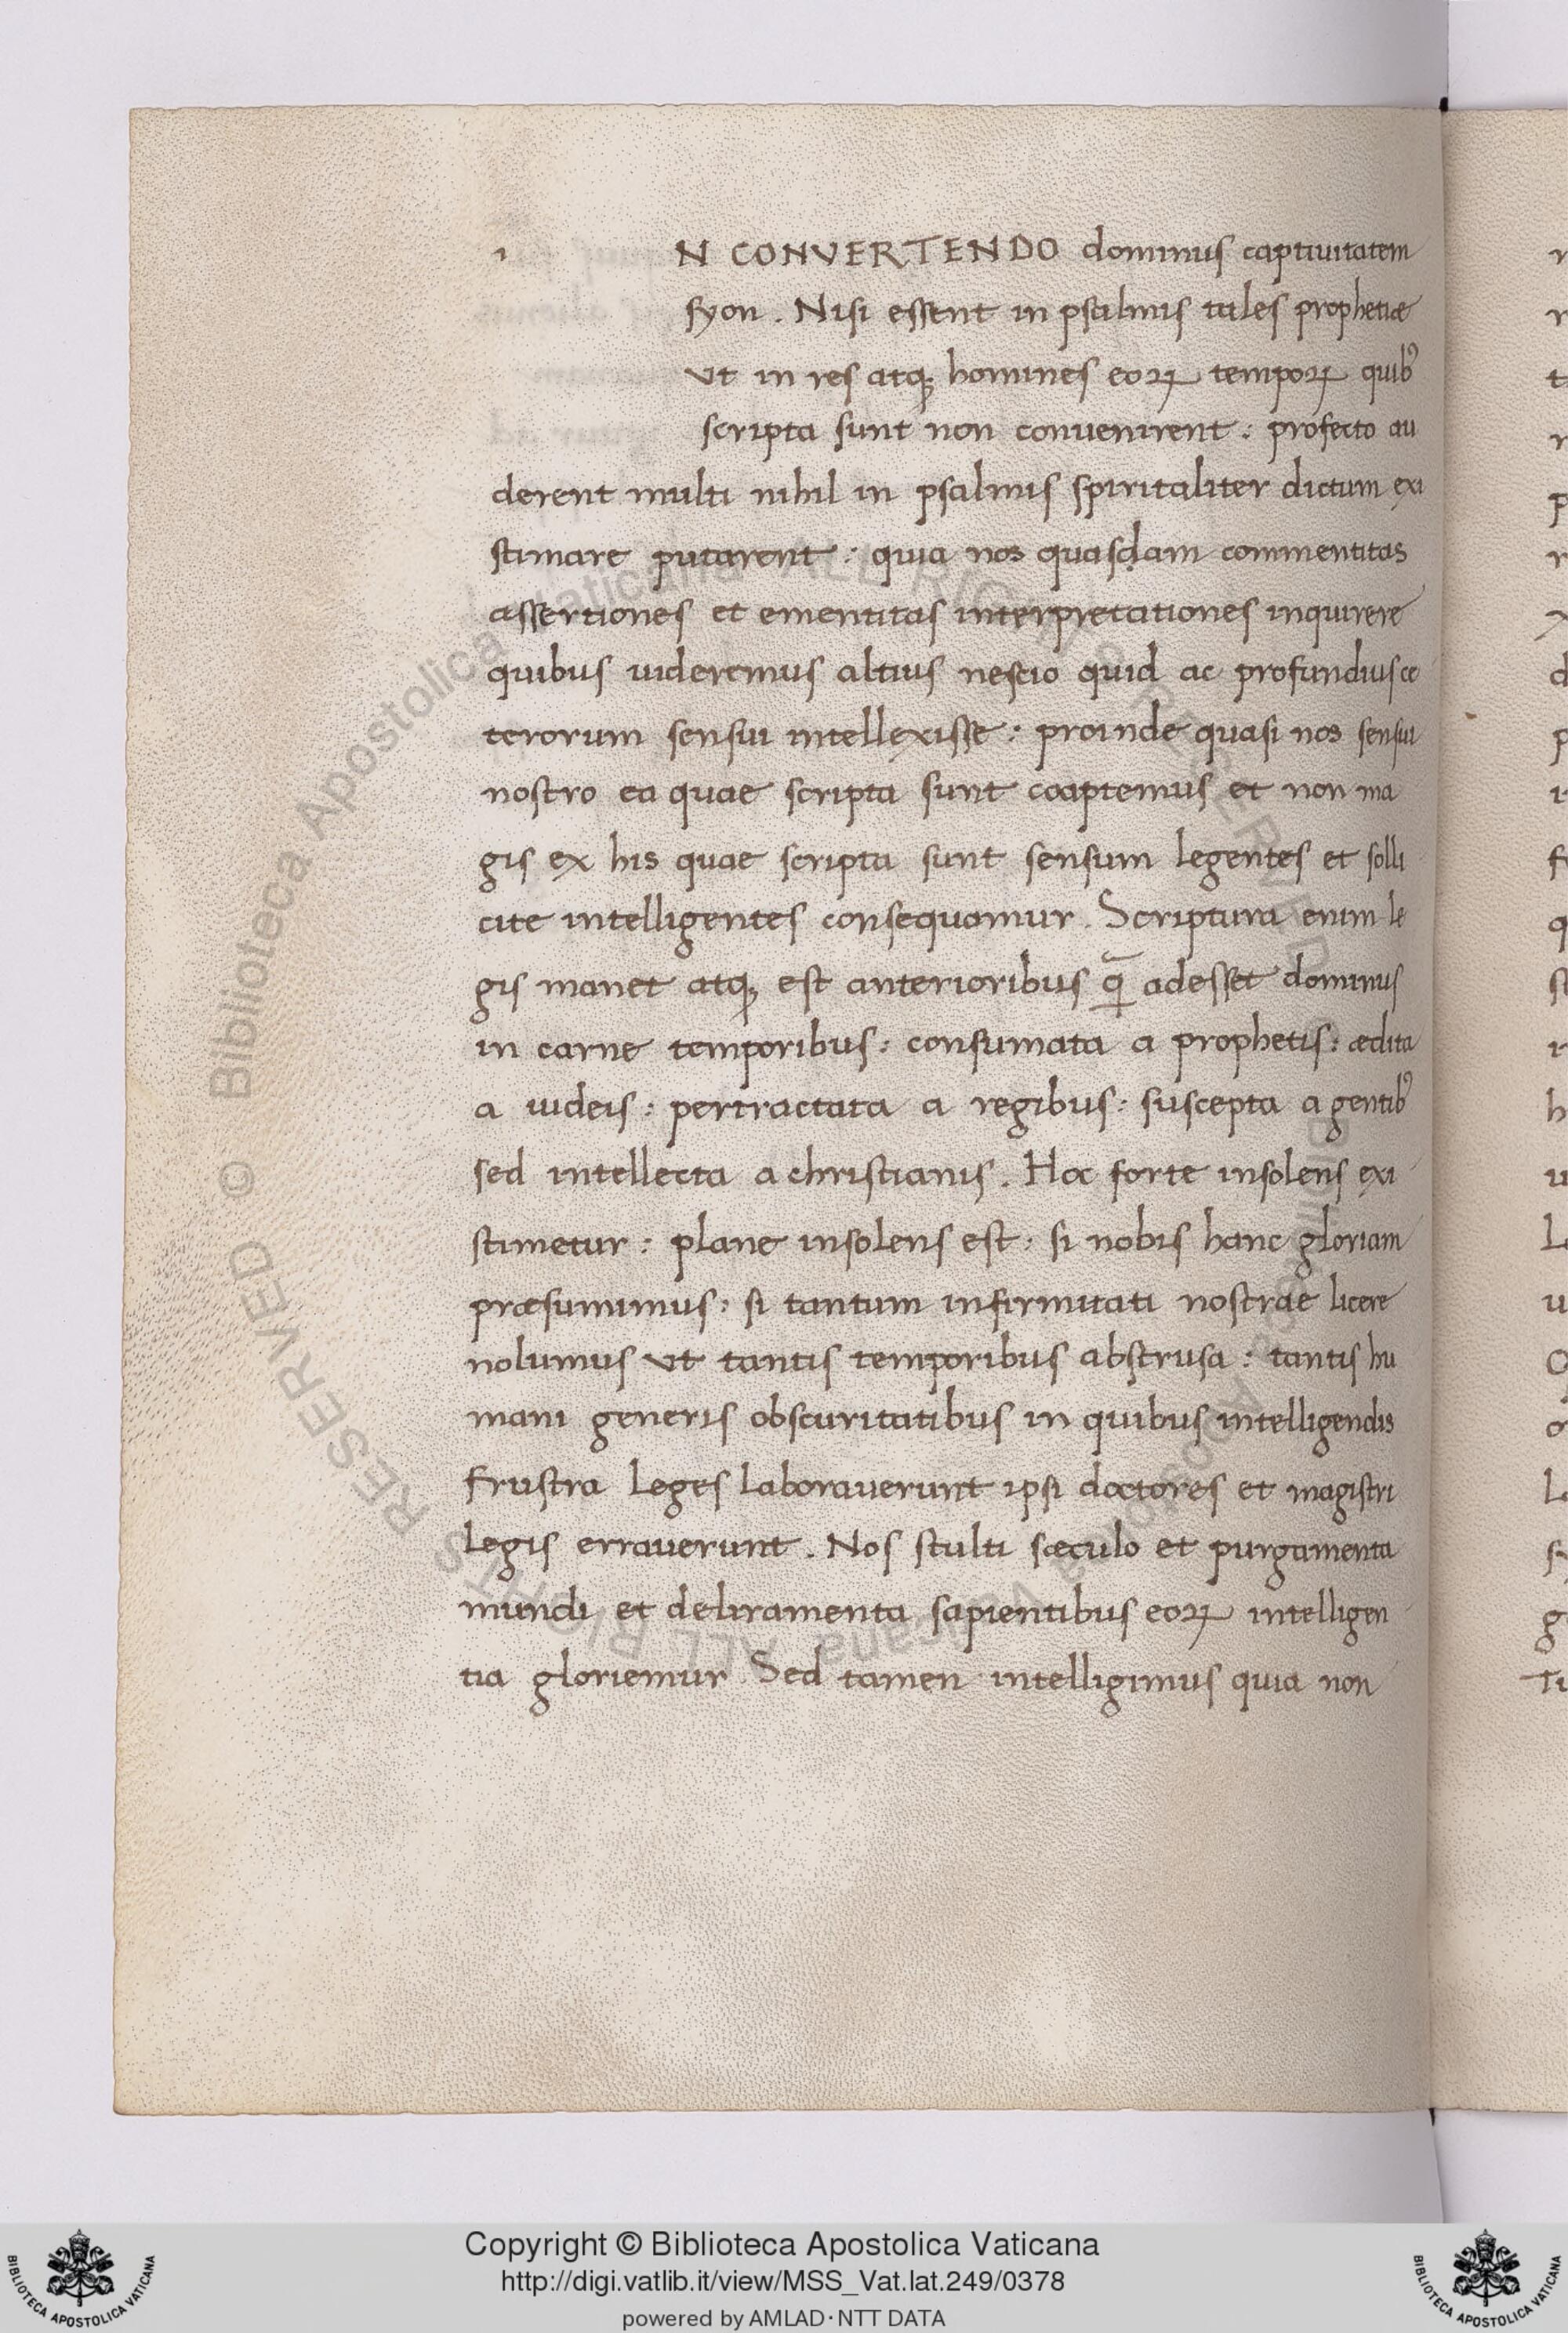 ı N CONVERTENDO dominus captiuitatem
syon . Nisi essent in psalmis tales prophetiæ
ut in res atq; homines eoꝝ tempoꝝ quibꝰ
scripta sunt non conuenirent : profecto au
derent multi nihil in psalmis spiritaliter dictum exi
stimare putarent : quia nos quasdam commentitas
assertiones et ementitas interpretationes inquirere
quibus uideremus altius nescio quid ac profundius ce
terorum sensui intellexisse : proinde quasi nos sensui
nostro ea quae scripta sunt coaptemus et non ma
gis ex his quae scripta sunt sensum legentes et solli
cite intelligentes consequamur . Scriptura enim le
gis manet atq; est anterioribus q̃ adesset dominus
in carne temporibus : consumata a prophetis : ædita
a iudeis : pertractata a regibus : suscepta a gentibꝰ
sed intellecta a christianis . Hoc forte insolens exi
stimetur : plane insolens est : si nobis hanc gloriam
præsumimus : si tantum infirmitati nostrae licere
nolumus ut tantis temporibus abstrusa : tantis hu
mani generis obscuritatibus in quibus intelligendis
frustra leges laborauerunt ipsi doctores et magistri
legis errauerunt . Nos stulti sæculo et purgamenta
mundi et deliramenta sapientibus eoꝝ intelligen
tia gloriemur . Sed tamen intelligimus quia non
© Biblioteca Apostolica Vaticana ALL RIGHTS RESERVED
Copyright © Biblioteca Apostolica Vaticana
http://digi.vatlib.it/view/MSS_Vat.lat.249/0378
powered by AMLAD·NTT DATA
BIBLIOTECA APOSTOLICA VATICANA
BIBLIOTECA APOSTOLICA VATICANA